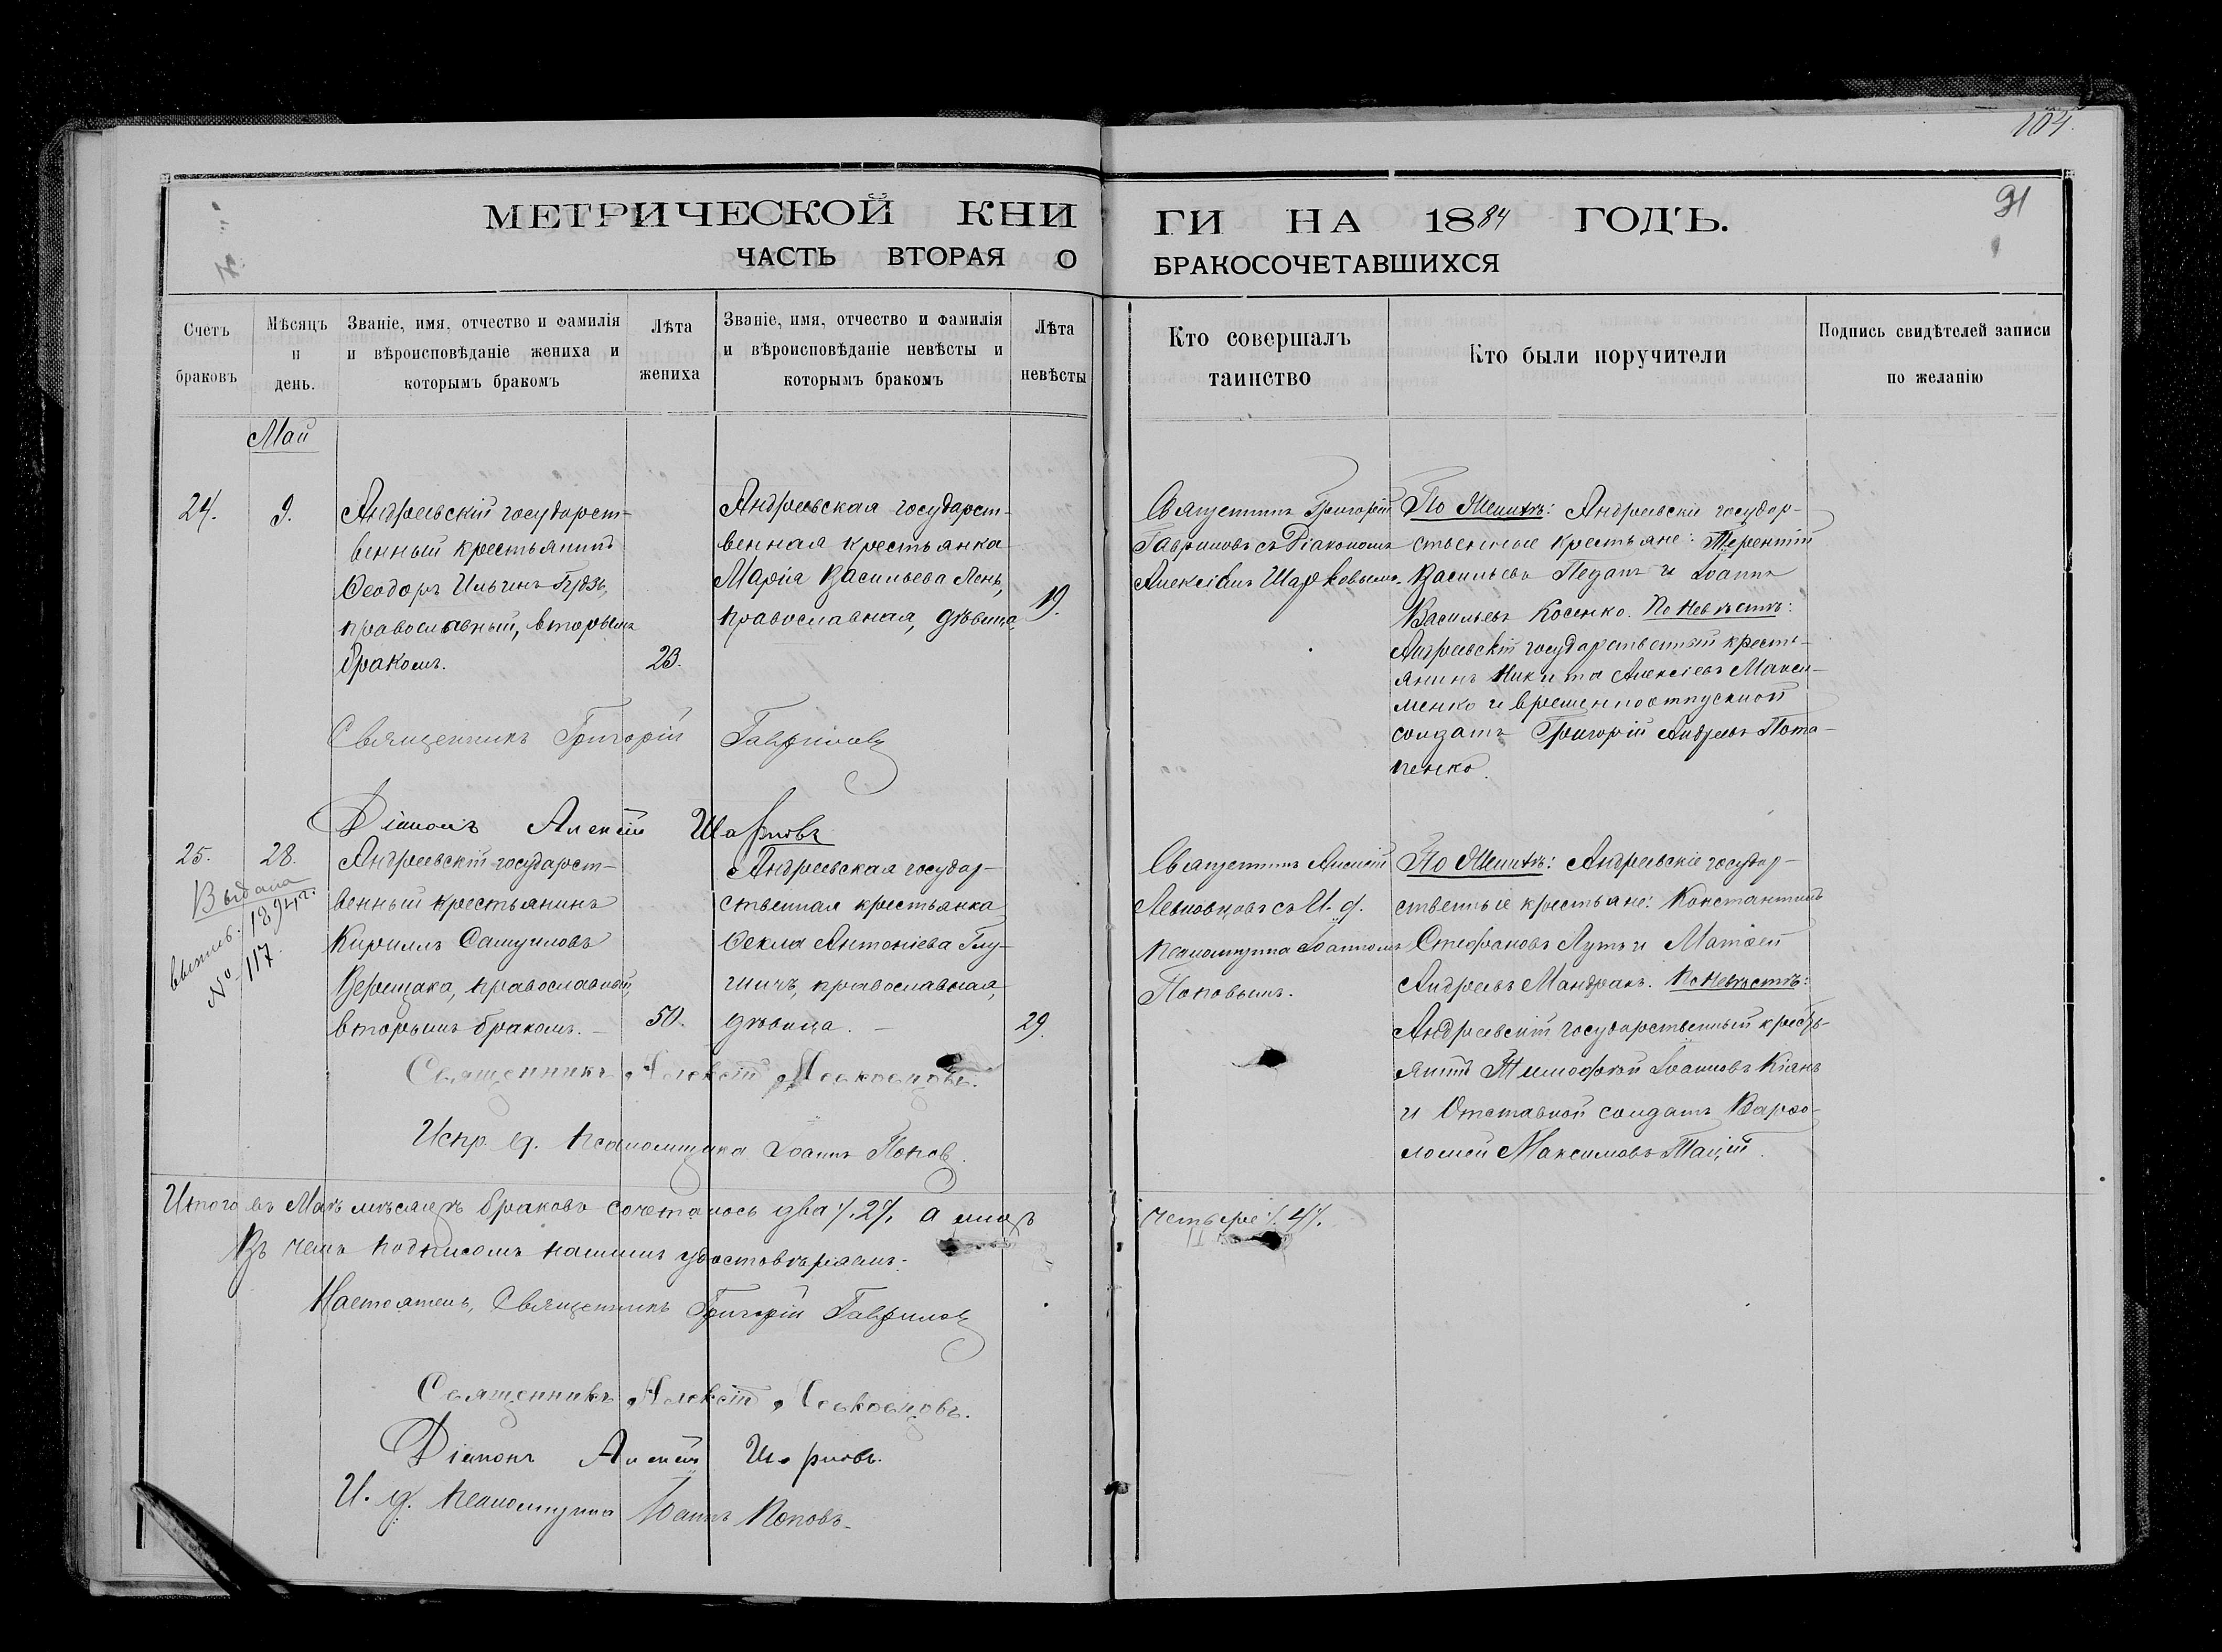 104.
91
МЕТРИЧЕСКОЙ КНИ
ГИ НА 1884 ГОДЪ.
ЧАСТЬ ВТОРАЯ О
БРАКОСОЧЕТАВШИХСЯ
Счетъ браковъ
Мѣсяцъ и день.
Званіе, имя, отчество и фамилія
и вѣроисповѣданіе жениха и
которымъ бракомъ
Лѣта
жениха
Званіе, имя, отчество и фамилія
и вѣроисповѣданіе невѣсты и
которымъ бракомъ
Лѣта
невѣсты
Кто совершалъ
таинство
Кто были поручители
Подпись свидѣтелей записи
по желанію
Май
24.
9.
Андреевскій государст-
венный крестьянинъ
Ѳеодоръ Ильинъ
православный, вторымъ
бракомъ.
23.
Андреевская государст-
венная крестьянка
Марія Васильева Лень,
православная, дѣвица.
19.
Священникъ Григорій
Гавриловъ съ Діакономъ
Алексіемъ Шарковымъ.
По Женихѣ: Андреевскіе государ-
ственные крестьяне: Терентій
Васильевъ Педанъ и Іоаннъ
Васильевъ Косенко. По невѣстѣ:
Андреевскій государственный кресть-
янинъ Никита Алексіевъ Макси-
менко и временноотпускной
солдатъ Григорій Андреевъ Пота-
пенко.
Священникъ Григорій Гавриловъ
Діаконъ Алексій
25.
28.
Выдана
выпись. 1894 г.
№ 117.
Андреевскій государст-
венный крестьянинъ
Кириллъ Самуиловъ
Верещака, православный,
вторымъ бракомъ. –
50.
Андреевская государ-
ственная крестьянка
Ѳекла Антоніева Глу-
православная,
дѣвица. –
29.
Священникъ Алексій
Левковцовъ съ И. д.
псаломщика Іоанномъ
Поповымъ.
По Женихѣ: Андреевскіе государ-
ственные крестьяне: Константинъ
Стефановъ Лутъ и Матѳей
Андреевъ Мандракъ. По Невѣстѣ:
Андреевскій государственный кресть-
янинъ Тимофѣй Іоанновъ Кіянъ
и Отставной солдатъ Варѳо-
ломей Максимовъ Тацій.
Священникъ Алексій Левковцовъ.
Испр. д. псаломщика Іоаннъ Попов.
Итого въ Маѣ мѣсяцѣ браковъ сочеталось два /.2/. а лицъ
четыре /.4/.
Въ чемъ подписомъ нашимъ удостовѣряемъ:
Настоятель, Священникъ Григорій Гаврилов
Священникъ Алексій Левковцовъ.
Діаконъ Алексій
И. д. псаломщика Іоаннъ Поповъ.